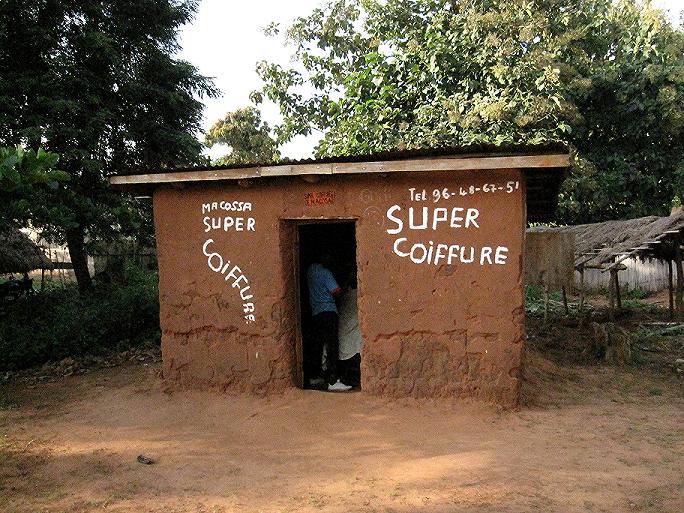 MACOSSA
SUPER
COiFFURE
TEL 96-48-67-51
SUPER
COiFFURE